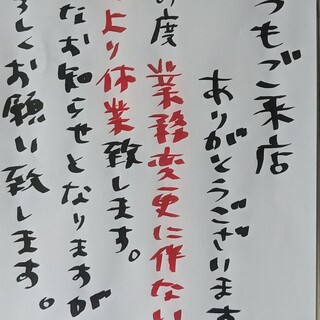 つもご来店
ありがとうございます
の度 業務変更に伴ない
より休業致します。
なお知らせとなりますが
ろしくお願い致します。